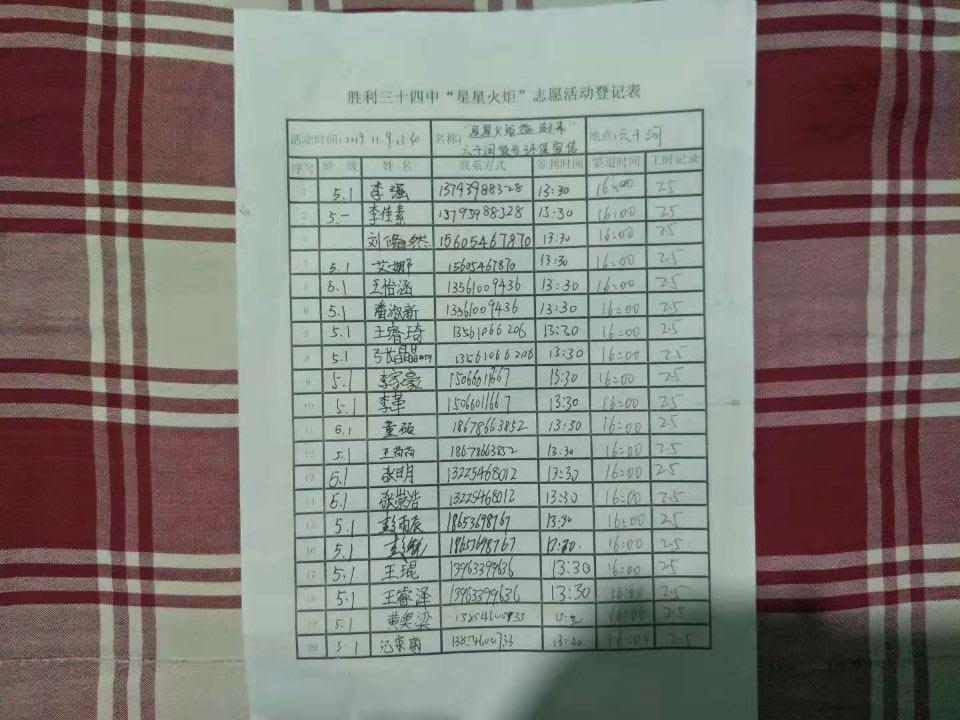 胜利三十四中“星星火炬”志愿活动登记表
活动时间:2019.11.9 13:30 名称:"星星火炬 地点:六干河
六干河 环保宣传
序号 班 级 姓 名 联系方式 签到时间 签退时间 工时记录
1 5.1 李强 13793988328 13:30 16:00 2.5
2 5.一 李佳素 13793988328 13:30 16:00 2.5
3 刘修然 15605467870 13:30 16:00 2.5
4 5.1 艾娜 15605467870 13:30 16:00 2.5
5 5.1 王怡涵 13561009436 13:30 16:00 2.5
6 5.1 13561009436 13:30 16:00 2.5
7 5.1 王睿琦 13561066206 13:30 16:00 2.5
8 5.1 张晶晶 13561066206 13:30 16:00 2.5
9 5.1 李家豪 15066011667 13:30 16:00 2.5
10 5.1 李革 15066011667 13:30 16:00 2.5
11 5.1 董硕 18678663852 13:30 16:00 2.5
12 5.1 王芮芮 18678663852 13:30 16:00 2.5
13 5.1 张明 13225468012 13:30 16:00 2.5
14 5.1 张荣浩 13225468012 13:30 16:00 2.5
15 5.1 彭雨辰 18653698767 13:30 16:00 2.5
16 5.1 18653698767 13:30 16:00 2.5
17 5.1 王琨 13963399636 13:30 16:00 2.5
18 5.1 王睿泽 13963399636 13:30 16:00 2.5
19 5.1 黄奥梁 13854600733 16:00 2.5
20 5.1 13854600733 13:30 16:00 2.5